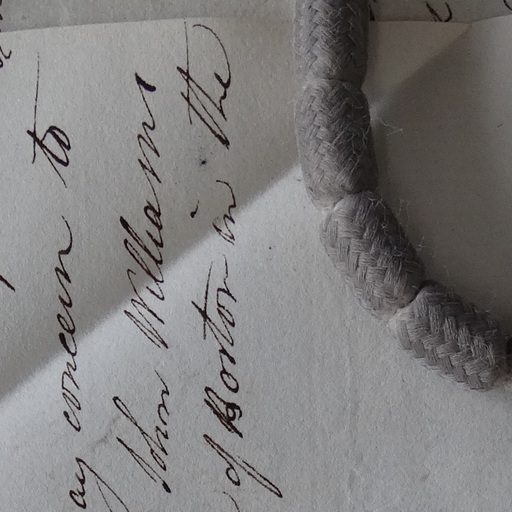 ay concern to
John Williams
of Boston in the